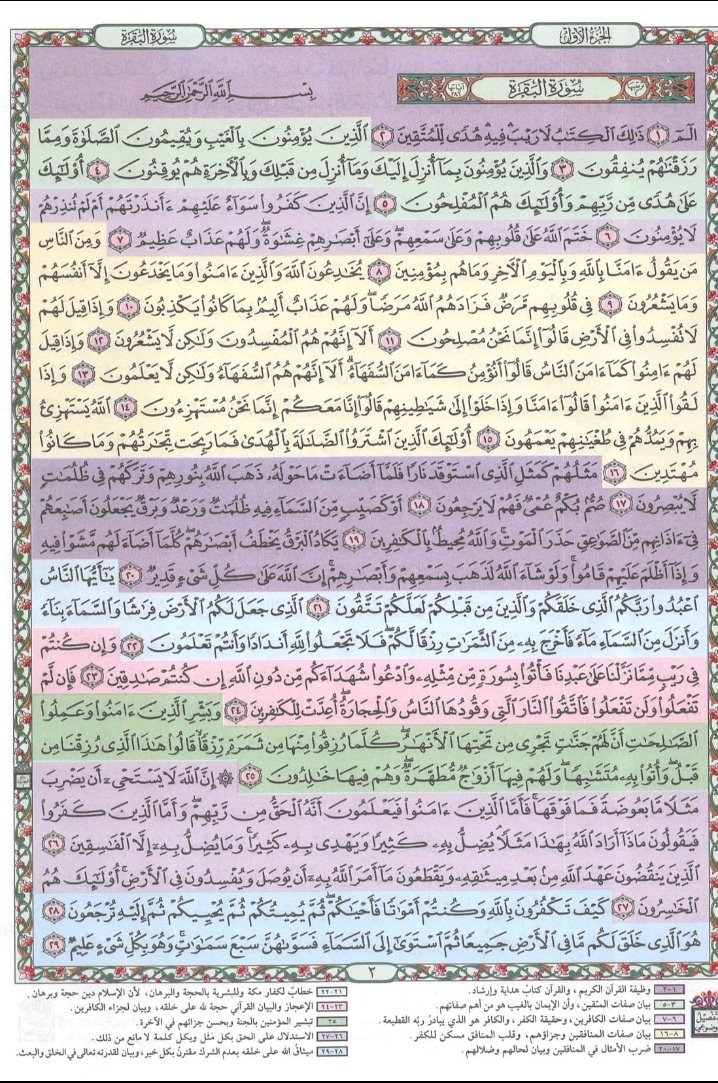 الجزء الأول
سورة البقرة
سورة البقرة
بسم الله الرحمن الرحيم
الٓمٓ ١ ذَٰلِكَ الْكِتَٰبُ لَا رَيْبَ فِيهِ هُدًى لِّلْمُتَّقِينَ ٢ الَّذِينَ يُؤْمِنُونَ بِالْغَيْبِ وَيُقِيمُونَ الصَّلَوٰةَ وَمِمَّا
رَزَقْنَٰهُمْ يُنفِقُونَ ٣ وَالَّذِينَ يُؤْمِنُونَ بِمَا أُنزِلَ إِلَيْكَ وَمَا أُنزِلَ مِن قَبْلِكَ وَبِالْأَخِرَةِ هُمْ يُوقِنُونَ ٤ أُوْلَٰئِكَ
عَلَىٰ هُدًى مِّن رَّبِّهِمْ وَأُوْلَٰئِكَ هُمُ الْمُفْلِحُونَ ٥ إِنَّ الَّذِينَ كَفَرُوا سَوَاءٌ عَلَيْهِمْ ءَأَنذَرْتَهُمْ أَمْ لَمْ تُنذِرْهُمْ
لَا يُؤْمِنُونَ ٦ خَتَمَ اللَّهُ عَلَىٰ قُلُوبِهِمْ وَعَلَىٰ سَمْعِهِمْ وَعَلَىٰ أَبْصَٰرِهِمْ غِشَٰوَةٌ وَلَهُمْ عَذَابٌ عَظِيمٌ ٧ وَمِنَ النَّاسِ
مَن يَقُولُ ءَامَنَّا بِاللَّهِ وَبِالْيَوْمِ الْأَخِرِ وَمَا هُم بِمُؤْمِنِينَ ٨ يُخَٰدِعُونَ اللَّهَ وَالَّذِينَ ءَامَنُوا وَمَا يَخْدَعُونَ إِلَّا أَنفُسَهُمْ
وَمَا يَشْعُرُونَ ٩ فِي قُلُوبِهِم مَّرَضٌ فَزَادَهُمُ اللَّهُ مَرَضًا وَلَهُمْ عَذَابٌ أَلِيمٌ بِمَا كَانُوا يَكْذِبُونَ ١٠ وَإِذَا قِيلَ لَهُمْ
لَا تُفْسِدُوا فِي الْأَرْضِ قَالُوا إِنَّمَا نَحْنُ مُصْلِحُونَ ١١ أَلَا إِنَّهُمْ هُمُ الْمُفْسِدُونَ وَلَٰكِن لَّا يَشْعُرُونَ ١٢ وَإِذَا قِيلَ
لَهُمْ ءَامِنُوا كَمَا ءَامَنَ النَّاسُ قَالُوا أَنُؤْمِنُ كَمَا ءَامَنَ السُّفَهَاءُ أَلَا إِنَّهُمْ هُمُ السُّفَهَاءُ وَلَٰكِن لَّا يَعْلَمُونَ ١٣ وَإِذَا
لَقُوا الَّذِينَ ءَامَنُوا قَالُوا ءَامَنَّا وَإِذَا خَلَوْا إِلَىٰ شَيَٰطِينِهِمْ قَالُوا إِنَّا مَعَكُمْ إِنَّمَا نَحْنُ مُسْتَهْزِءُونَ ١٤ اللَّهُ يَسْتَهْزِئُ
بِهِمْ وَيَمُدُّهُمْ فِي طُغْيَٰنِهِمْ يَعْمَهُونَ ١٥ أُوْلَٰئِكَ الَّذِينَ اشْتَرَوُا الضَّلَٰلَةَ بِالْهُدَىٰ فَمَا رَبِحَت تِّجَٰرَتُهُمْ وَمَا كَانُوا
مُهْتَدِينَ ١٦ مَثَلُهُمْ كَمَثَلِ الَّذِي اسْتَوْقَدَ نَارًا فَلَمَّا أَضَاءَتْ مَا حَوْلَهُ ذَهَبَ اللَّهُ بِنُورِهِمْ وَتَرَكَهُمْ فِي ظُلُمَٰتٍ
لَّا يُبْصِرُونَ ١٧ صُمٌّ بُكْمٌ عُمْيٌ فَهُمْ لَا يَرْجِعُونَ ١٨ أَوْ كَصَيِّبٍ مِّنَ السَّمَاءِ فِيهِ ظُلُمَٰتٌ وَرَعْدٌ وَبَرْقٌ يَجْعَلُونَ أَصَٰبِعَهُمْ
فِي ءَاذَانِهِم مِّنَ الصَّوَٰعِقِ حَذَرَ الْمَوْتِ وَاللَّهُ مُحِيطٌ بِالْكَٰفِرِينَ ١٩ يَكَادُ الْبَرْقُ يَخْطَفُ أَبْصَٰرَهُمْ كُلَّمَا أَضَاءَ لَهُم مَّشَوْا فِيهِ
وَإِذَا أَظْلَمَ عَلَيْهِمْ قَامُوا وَلَوْ شَاءَ اللَّهُ لَذَهَبَ بِسَمْعِهِمْ وَأَبْصَٰرِهِمْ إِنَّ اللَّهَ عَلَىٰ كُلِّ شَيْءٍ قَدِيرٌ ٢٠ يَٰأَيُّهَا النَّاسُ
اعْبُدُوا رَبَّكُمُ الَّذِي خَلَقَكُمْ وَالَّذِينَ مِن قَبْلِكُمْ لَعَلَّكُمْ تَتَّقُونَ ٢١ الَّذِي جَعَلَ لَكُمُ الْأَرْضَ فِرَٰشًا وَالسَّمَاءَ بِنَاءً
وَأَنزَلَ مِنَ السَّمَاءِ مَاءً فَأَخْرَجَ بِهِ مِنَ الثَّمَرَٰتِ رِزْقًا لَّكُمْ فَلَا تَجْعَلُوا لِلَّهِ أَندَادًا وَأَنتُمْ تَعْلَمُونَ ٢٢ وَإِن كُنتُمْ
فِي رَيْبٍ مِّمَّا نَزَّلْنَا عَلَىٰ عَبْدِنَا فَأْتُوا بِسُورَةٍ مِّن مِّثْلِهِ وَادْعُوا شُهَدَاءَكُم مِّن دُونِ اللَّهِ إِن كُنتُمْ صَٰدِقِينَ ٢٣ فَإِن لَّمْ
تَفْعَلُوا وَلَن تَفْعَلُوا فَاتَّقُوا النَّارَ الَّتِي وَقُودُهَا النَّاسُ وَالْحِجَارَةُ أُعِدَّتْ لِلْكَٰفِرِينَ ٢٤ وَبَشِّرِ الَّذِينَ ءَامَنُوا وَعَمِلُوا
الصَّٰلِحَٰتِ أَنَّ لَهُمْ جَنَّٰتٍ تَجْرِي مِن تَحْتِهَا الْأَنْهَٰرُ كُلَّمَا رُزِقُوا مِنْهَا مِن ثَمَرَةٍ رِّزْقًا قَالُوا هَٰذَا الَّذِي رُزِقْنَا مِن
قَبْلُ وَأُتُوا بِهِ مُتَشَٰبِهًا وَلَهُمْ فِيهَا أَزْوَٰجٌ مُّطَهَّرَةٌ وَهُمْ فِيهَا خَٰلِدُونَ ٢٥ ۞ إِنَّ اللَّهَ لَا يَسْتَحْيِ أَن يَضْرِبَ
مَثَلًا مَّا بَعُوضَةً فَمَا فَوْقَهَا فَأَمَّا الَّذِينَ ءَامَنُوا فَيَعْلَمُونَ أَنَّهُ الْحَقُّ مِن رَّبِّهِمْ وَأَمَّا الَّذِينَ كَفَرُوا
فَيَقُولُونَ مَاذَا أَرَادَ اللَّهُ بِهَٰذَا مَثَلًا يُضِلُّ بِهِ كَثِيرًا وَيَهْدِي بِهِ كَثِيرًا وَمَا يُضِلُّ بِهِ إِلَّا الْفَٰسِقِينَ ٢٦
الَّذِينَ يَنقُضُونَ عَهْدَ اللَّهِ مِن بَعْدِ مِيثَٰقِهِ وَيَقْطَعُونَ مَا أَمَرَ اللَّهُ بِهِ أَن يُوصَلَ وَيُفْسِدُونَ فِي الْأَرْضِ أُوْلَٰئِكَ هُمُ
الْخَٰسِرُونَ ٢٧ كَيْفَ تَكْفُرُونَ بِاللَّهِ وَكُنتُمْ أَمْوَٰتًا فَأَحْيَٰكُمْ ثُمَّ يُمِيتُكُمْ ثُمَّ يُحْيِيكُمْ ثُمَّ إِلَيْهِ تُرْجَعُونَ ٢٨
هُوَ الَّذِي خَلَقَ لَكُم مَّا فِي الْأَرْضِ جَمِيعًا ثُمَّ اسْتَوَىٰ إِلَى السَّمَاءِ فَسَوَّىٰهُنَّ سَبْعَ سَمَٰوَٰتٍ وَهُوَ بِكُلِّ شَيْءٍ عَلِيمٌ ٢٩
٢
١-٢ وظيفة القرآن الكريم، والقرآن كتابُ هداية وإرشاد.
٣-٥ بيان صفات المتّقين، وأن الإيمان بالغيب هو من أهم صفاتهم.
٦-٧ بيان صفات الكافرين، وحقيقة الكفر، والكافر هو الذي يبادرُ ربّه القطيعة.
٨-١٦ بيان صفات المنافقين وجزاؤهم، وقلب المنافق مسكن للكفر.
١٧-٢٠ ضرب الأمثال في المنافقين وبيان لحالهم وضلالهم.
٢١-٢٢ خطابٌ لكفار مكة وللبشرية بالحجة والبرهان، لأن الإسلام دين حجة وبرهان.
٢٣-٢٤ الإعجاز والبيان القرآني حجة لله على خلقه، وبيان لجزاء الكافرين.
٢٥ تبشير المؤمنين بالجنة وبحسن جزائهم في الآخرة.
٢٦-٢٧ الاستدلال على الحق بكل مثل وبكل كلمة لا مانع من ذلك.
٢٨-٢٩ ميثاقُ الله على خلقه بعدم الشرك مقترنٌ بكل خير، وبيان لقدرته تعالى في الخلق والبعث.